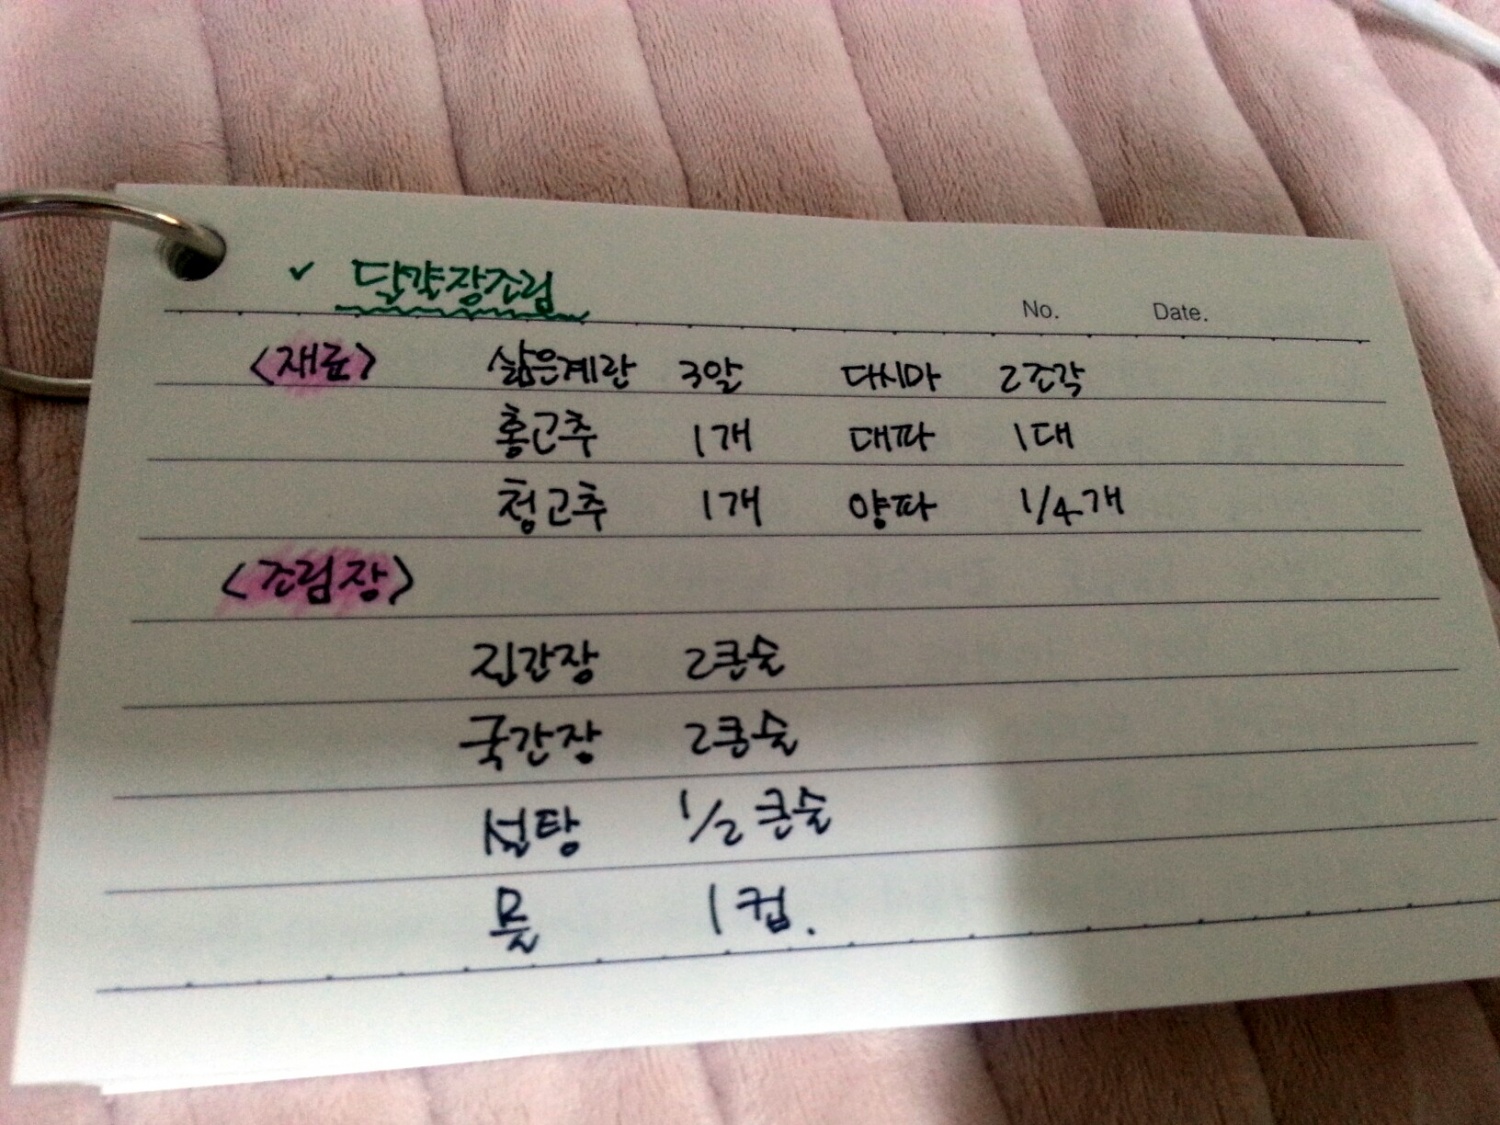 ✓ 달걀장조림
No. Date.
<재료> 삶은계란 3알 다시마 2조각
홍고추 1개 대파 1대
청고추 1개 양파 1/4개
<조림장>
진간장 2큰술
국간장 2큰술
설탕 1/2 큰술
물 1컵.